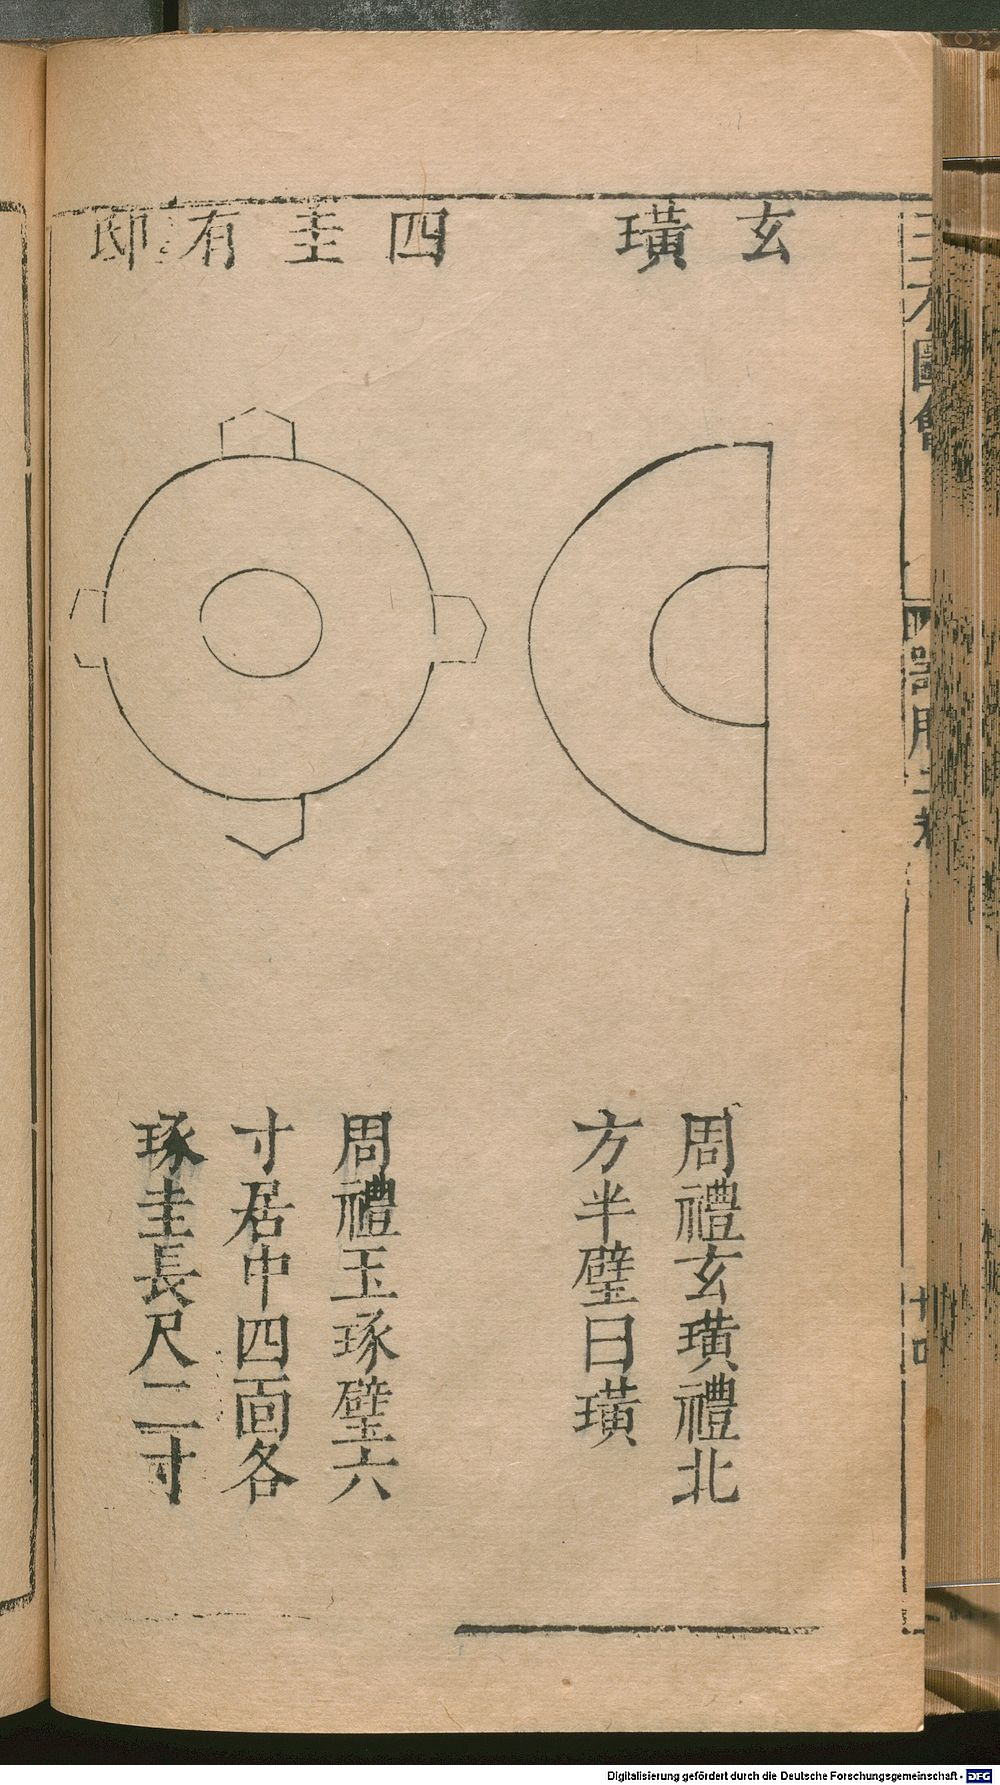 玄璜
周禮玄璜禮北
方半璧曰璜
四圭有邸
周禮玉琢璧六
寸居中四面各
琢圭長尺二寸
三才圖會
器用二卷
十四
Digitalisierung gefördert durch die Deutsche Forschungsgemeinschaft - DFG